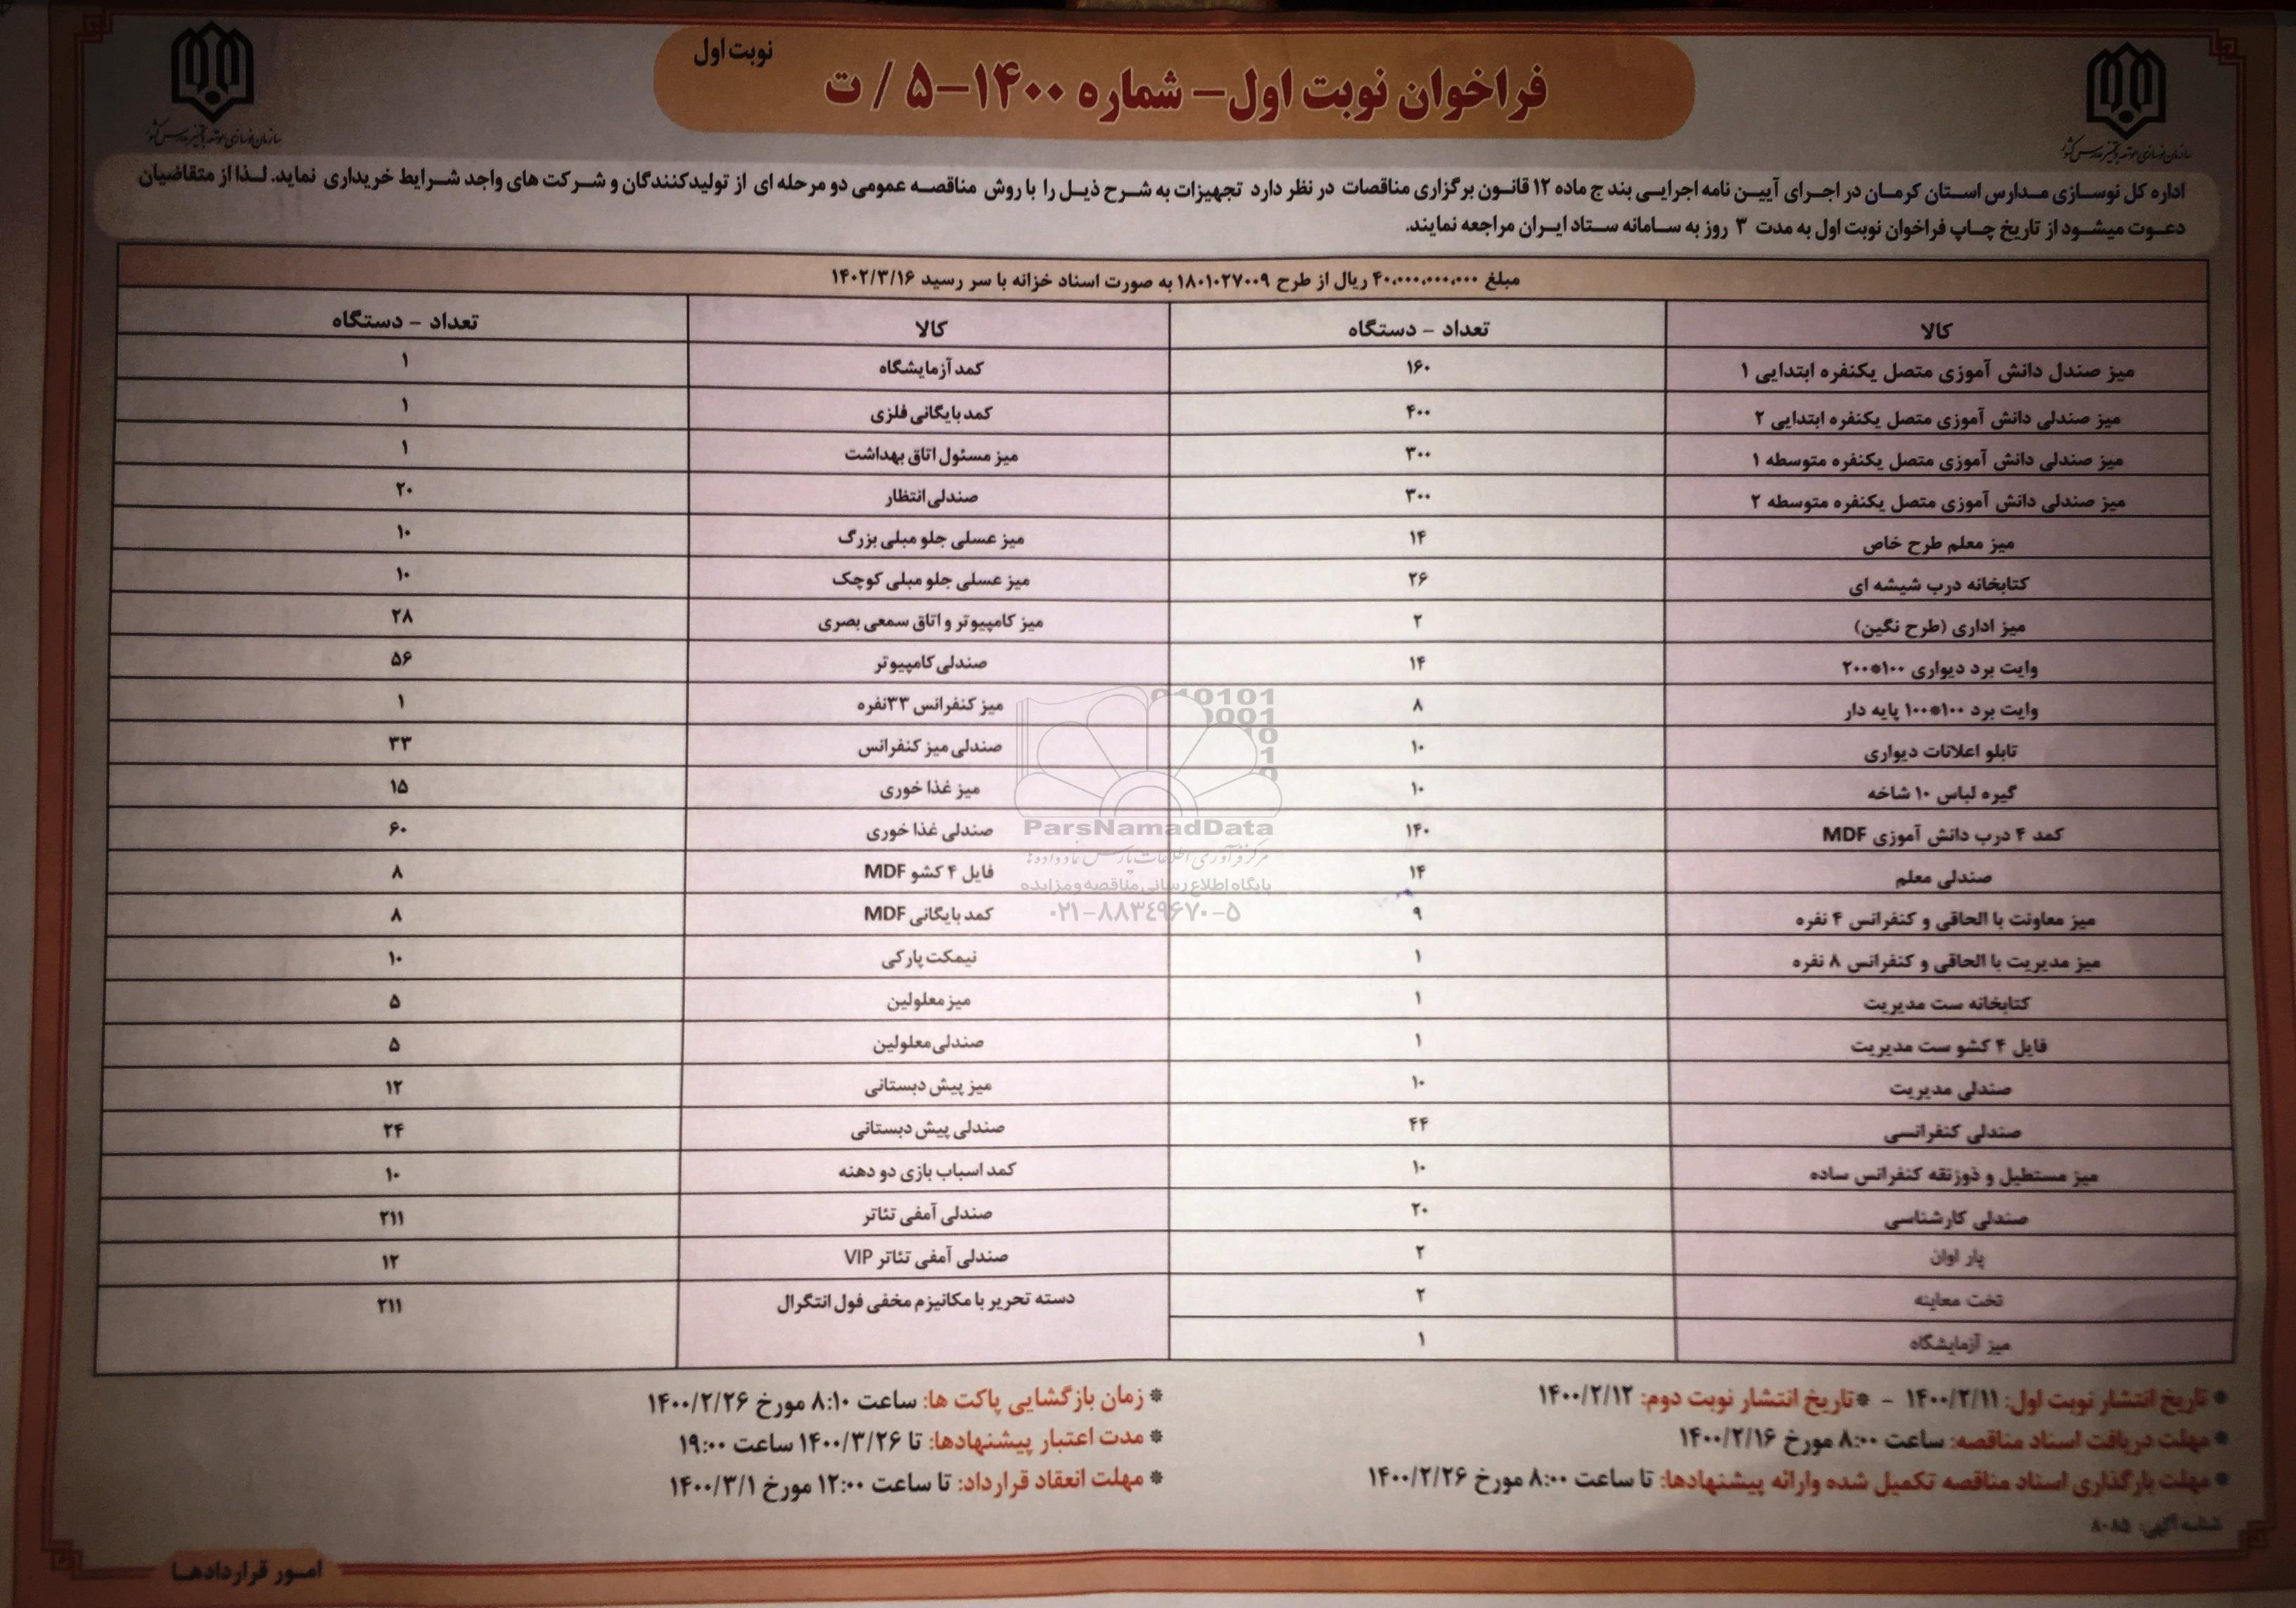 نوبت اول
فراخوان نوبت اول- شماره ۱۴۰۰-۵ / ت
سازمان نوسازی، توسعه و تجهیز مدارس کشور
سازمان نوسازی، توسعه و تجهیز مدارس کشور
اداره کل نوسازی مدارس استان کرمان در اجرای آیین نامه اجرایی بند ج ماده ۱۲ قانون برگزاری مناقصات در نظر دارد تجهیزات به شرح ذیل را با روش مناقصه عمومی دو مرحله ای از تولیدکنندگان و شرکت های واجد شرایط خریداری نماید. لذا از متقاضیان
دعوت میشود از تاریخ چاپ فراخوان نوبت اول به مدت ۳ روز به سامانه ستاد ایران مراجعه نمایند.
مبلغ ۴۰،۰۰۰،۰۰۰،۰۰۰ ریال از طرح ۱۸۰۱۰۲۷۰۰۹ به صورت اسناد خزانه با سر رسید ۱۴۰۲/۳/۱۶
کالا تعداد - دستگاه کالا تعداد - دستگاه
میز صندل دانش آموزی متصل یکنفره ابتدایی ۱ ۱۶۰ کمد آزمایشگاه ۱
میز صندلی دانش آموزی متصل یکنفره ابتدایی ۲ ۴۰۰ کمد بایگانی فلزی ۱
میز صندلی دانش آموزی متصل یکنفره متوسطه ۱ ۳۰۰ میز مسئول اتاق بهداشت ۱
میز صندلی دانش آموزی متصل یکنفره متوسطه ۲ ۳۰۰ صندلی انتظار ۲۰
میز معلم طرح خاص ۱۴ میز عسلی جلو مبلی بزرگ ۱۰
کتابخانه درب شیشه ای ۲۶ میز عسلی جلو مبلی کوچک ۱۰
میز اداری (طرح نگین) ۲ میز کامپیوتر و اتاق سمعی بصری ۲۸
وایت برد دیواری ۱۰۰*۲۰۰ ۱۴ صندلی کامپیوتر ۵۶
وایت برد ۱۰۰*۱۰۰ پایه دار ۸ میز کنفرانس ۳۳نفره ۱
تابلو اعلانات دیواری ۱۰ صندلی میز کنفرانس ۳۳
گیره لباس ۱۰ شاخه ۱۰ میز غذا خوری ۱۵
کمد ۴ درب دانش آموزی MDF ۱۴۰ صندلی غذا خوری ۶۰
صندلی معلم ۱۴ فایل ۴ کشو MDF ۸
میز معاونت با الحاقی و کنفرانس ۴ نفره ۹ کمد بایگانی MDF ۸
میز مدیریت با الحاقی و کنفرانس ۸ نفره ۱ نیمکت پارکی ۱۰
کتابخانه ست مدیریت ۱ میز معلولین ۵
فایل ۴ کشو ست مدیریت ۱ صندلی معلولین ۵
صندلی مدیریت ۱۰ میز پیش دبستانی ۱۲
صندلی کنفرانسی ۴۴ صندلی پیش دبستانی ۲۴
میز مستطیل و ذوزنقه کنفرانس ساده ۱۰ کمد اسباب بازی دو دهنه ۱۰
صندلی کارشناسی ۲۰ صندلی آمفی تئاتر ۲۱۱
پار اوان ۲ صندلی آمفی تئاتر VIP ۱۲
تخت معاینه ۲ دسته تحریر با مکانیزم مخفی فول انتگرال ۲۱۱
میز آزمایشگاه ۱
ParsNamadData
مرکز فرآوری اطلاعات پارس نماد داده ها
پایگاه اطلاع رسانی مناقصه و مزایده
۰۲۱-۸۸۳۴۹۶۷۰-۵
* تاریخ انتشار نوبت اول: ۱۴۰۰/۲/۱۱ - *تاریخ انتشار نوبت دوم: ۱۴۰۰/۲/۱۲
* مهلت دریافت اسناد مناقصه: ساعت ۸:۰۰ مورخ ۱۴۰۰/۲/۱۶
* مهلت بارگذاری اسناد مناقصه تکمیل شده وارائه پیشنهادها: تا ساعت ۸:۰۰ مورخ ۱۴۰۰/۲/۲۶
* زمان بازگشایی پاکت ها: ساعت ۸:۱۰ مورخ ۱۴۰۰/۲/۲۶
* مدت اعتبار پیشنهادها: تا ۱۴۰۰/۳/۲۶ ساعت ۱۹:۰۰
* مهلت انعقاد قرارداد: تا ساعت ۱۲:۰۰ مورخ ۱۴۰۰/۳/۱
آگهی: ۸۰۸۵
امور قراردادها